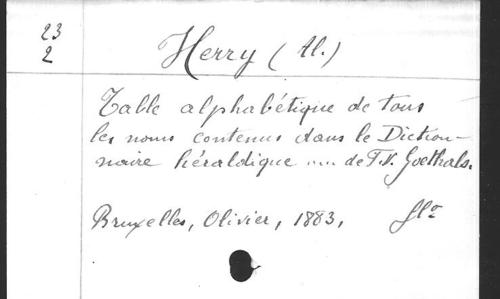 23
2
Herry (Al.)
Table alphabétique de tous
les noms contenus dans le Diction-
naire héraldique .... de F.V. Goethals.
Bruxelles, Olivier, 1883, flo